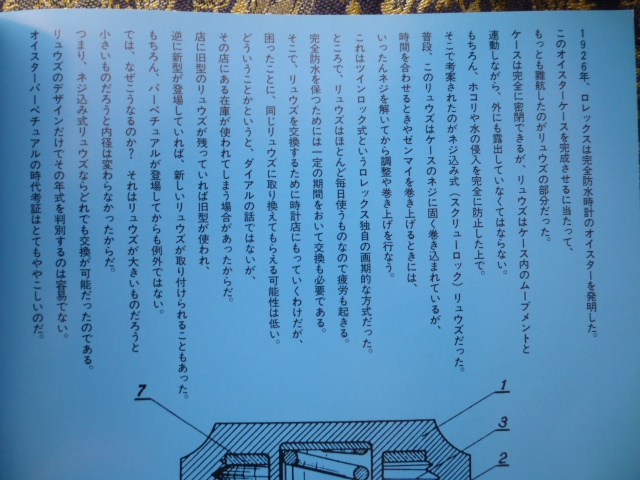 1926年、ロレックスは完全防水時計のオイスターを発明した。
このオイスターケースを完成させるに当たって、
もっとも難航したのがリュウズの部分だった。
ケースは完全に密閉できるが、リュウズはケース内のムーブメントと
連動しながら、外にも露出していなくてはならない。
もちろん、ホコリや水の侵入を完全に防止した上で。
そこで考案されたのがネジ込み式(スクリューロック)リュウズだった。
普段、このリュウズはケースのネジに固く巻き込まれているが、
時間を合わせるときやゼンマイを巻き上げるときには、
いったんネジを解いてから調整や巻き上げを行なう。
これはツインロック式というロレックス独自の画期的な方式だった。
ところで、リュウズはほとんど毎日使うものなので疲労も起きる。
完全防水を保つためには一定の期間をおいて交換も必要である。
そこで、リュウズを交換するために時計店にもっていくわけだが、
困ったことに、同じリュウズに取り換えてもらえる可能性は低い。
どういうことかというと、ダイアルの話ではないが、
その店にある在庫が使われてしまう場合があったからだ。
店に旧型のリュウズが残っていれば旧型が使われ、
逆に新型が登場していれば、新しいリュウズが取り付けられることもあった。
もちろん、パーペチュアルが登場してからも例外ではない。
では、なぜこうなるのか? それはリュウズが大きいものだろうと
小さいものだろうと内径は変わらなかったからだ。
つまり、ネジ込み式リュウズならどれでも交換が可能だったのである。
リュウズのデザインだけでその年式を判別するのは容易でない。
オイスターパーペチュアルの時代考証はとてもややこしいのだ。
7
1
3
2